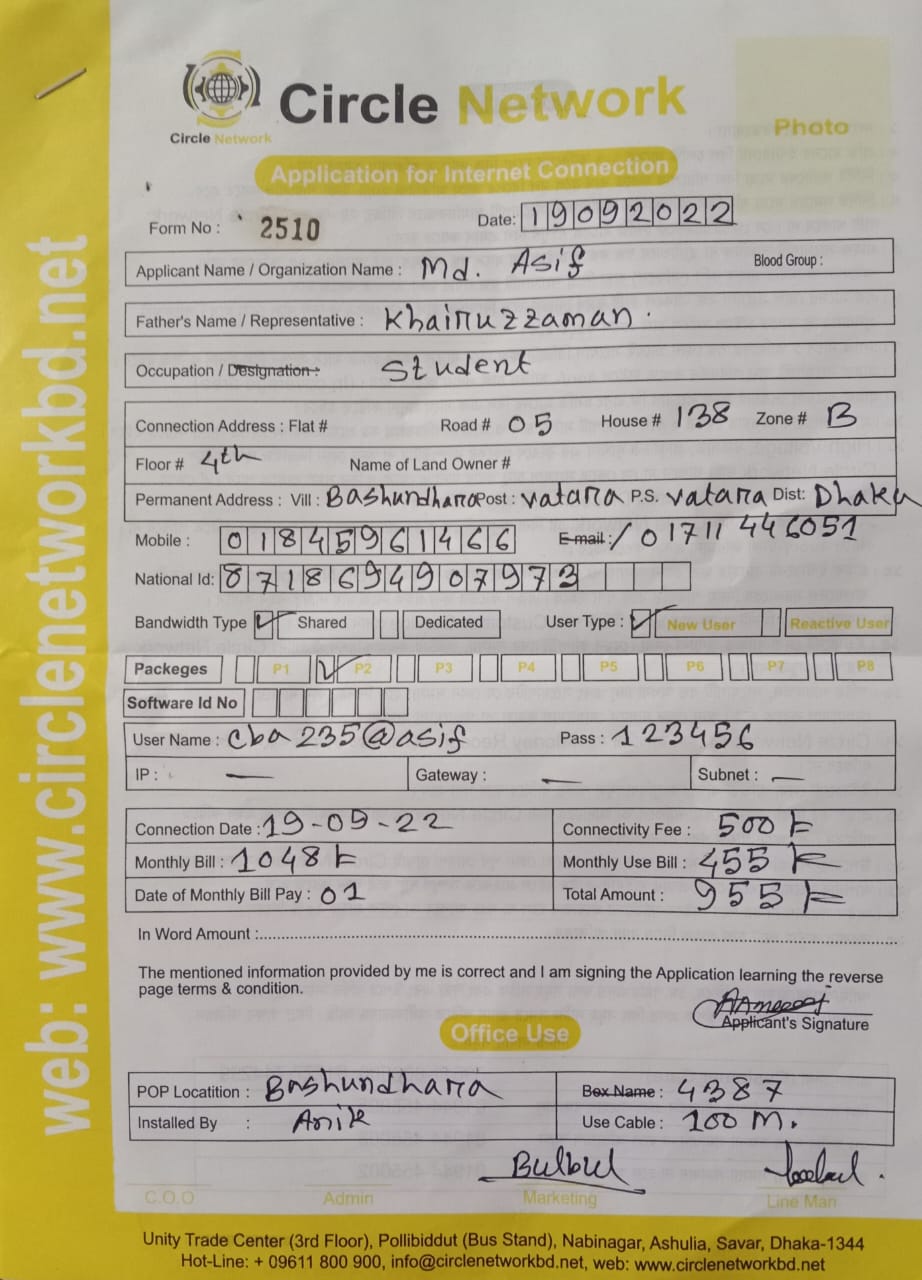 Circle Network
Circle Network
Photo
Application for Internet Connection
Form No : 2510 Date: 19092022
Applicant Name / Organization Name : Md. Asif Blood Group :
Father's Name / Representative : Khairuzzaman.
Occupation / Designation : Student
Connection Address : Flat # Road # 05 House # 138 Zone # B
Floor # 4th Name of Land Owner #
Permanent Address : Vill : Bashundhara Post : vatara P.S. vatara Dist: Dhaka
Mobile : 01845961466 E-mail : / 01711446051
National Id: 8718694907973
Bandwidth Type Shared Dedicated User Type : New User Reactive User
Packeges P1 P2 P3 P4 P5 P6 P7 P8
Software Id No
User Name : cba235@asif Pass : 123456
IP : — Gateway : — Subnet : —
Connection Date : 19-09-22 Connectivity Fee : 500 k
Monthly Bill : 1048 k Monthly Use Bill : 455 k
Date of Monthly Bill Pay : 01 Total Amount : 955 k
In Word Amount :
The mentioned information provided by me is correct and I am signing the Application learning the reverse
page terms & condition.
Applicant's Signature
Office Use
POP Locatition : Bashundhara Box Name : 4387
Installed By : Anik Use Cable : 100 M.
Bulbul
C.O.O Admin Marketing Line Man
Unity Trade Center (3rd Floor), Pollibiddut (Bus Stand), Nabinagar, Ashulia, Savar, Dhaka-1344
Hot-Line: + 09611 800 900, info@circlenetworkbd.net, web: www.circlenetworkbd.net
web: www.circlenetworkbd.net